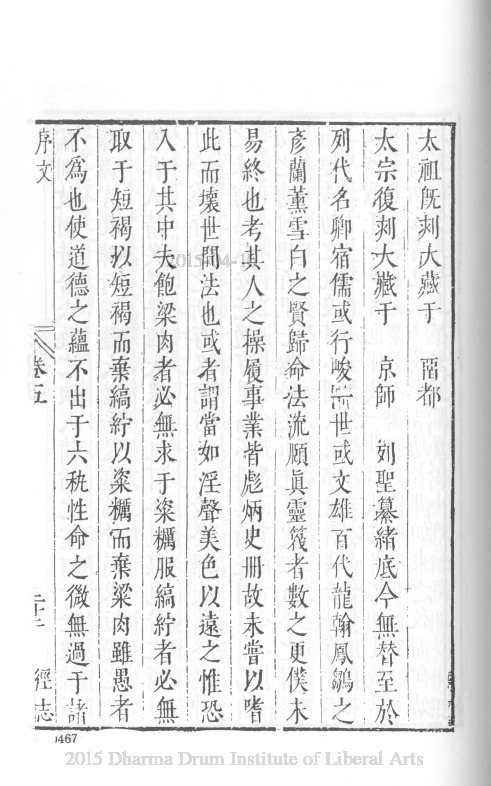 太祖既刻大藏于　畱都
太宗復刻大藏于　京師　列聖纂緒底今無替至於
列代名卿宿儒或行峻一世或文雄百代龍翰鳳鶵之
彥蘭薰雪白之賢歸命法流願眞靈筏者數之更僕未
易終也考其人之操履事業皆彪炳史冊故未嘗以嗜
此而壞世間法也或者謂當如淫聲美色以遠之惟恐
入于其中夫飽粱肉者必無求于粢糲服縞紵者必無
取于短褐以短褐而棄縞紵以粢糲而棄粱肉雖愚者
不爲也使道德之蘊不出于六秇性命之微無過于諸
序文　卷五　二十　經志
0467
2015-04-1
2015 Dharma Drum Institute of Liberal Arts